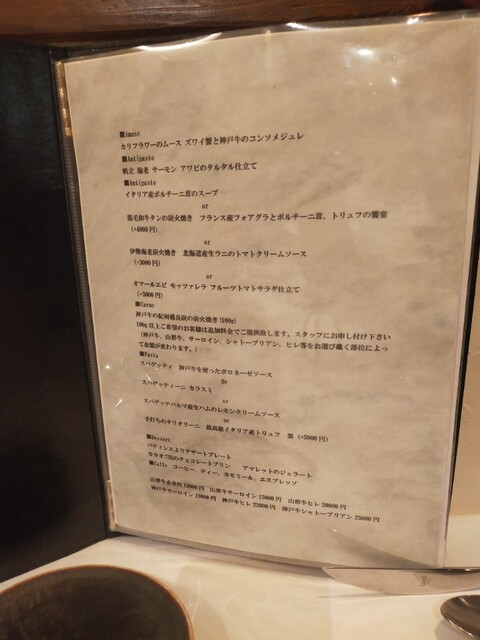 ■Amuse
カリフラワーのムース ズワイ蟹と神戸牛のコンソメジュレ
■Antipasto
帆立 海老 サーモン アワビのタルタル仕立て
■Antipasto
イタリア産ポルチーニ茸のスープ
or
黒毛和牛タンの炭火焼き フランス産フォアグラとポルチーニ茸、トリュフの饗宴
(+4000円)
or
伊勢海老炭火焼き 北海道産生ウニのトマトクリームソース
(+3000円)
or
オマールエビ モッツァレラ フルーツトマトサラダ仕立て
(+3000円)
■Carne
神戸牛の紀州備長炭の炭火焼き(100g)
100g以上ご希望のお客様は追加料金でご提供致します。スタッフにお申し付け下さい
(神戸牛、山形牛、サーロイン、シャトーブリアン、ヒレ等をお選び戴く部位によっ
て金額が変わります。)
■Pasta
スパゲッティ 神戸牛を使ったボロネーゼソース
Or
スパゲッティーニ カラスミ
or
スパゲッテパルマ産生ハムのレモンクリームソース
or
手打ちのタリオリーニ 最高級イタリア産トリュフ 黒 (+5000円)
■Dessert
パティシエよりデザートプレート
カカオ73%のチョコレートプリン アマレットのジェラート
■Caffe コーヒー、ティー、カモミール、エスプレッソ
山形牛赤身肉 12000円 山形牛サーロイン 15000円 山形牛ヒレ 20000円
神戸牛サーロイン 19000円 神戸牛ヒレ 22000円 神戸牛シャトーブリアン 25000円